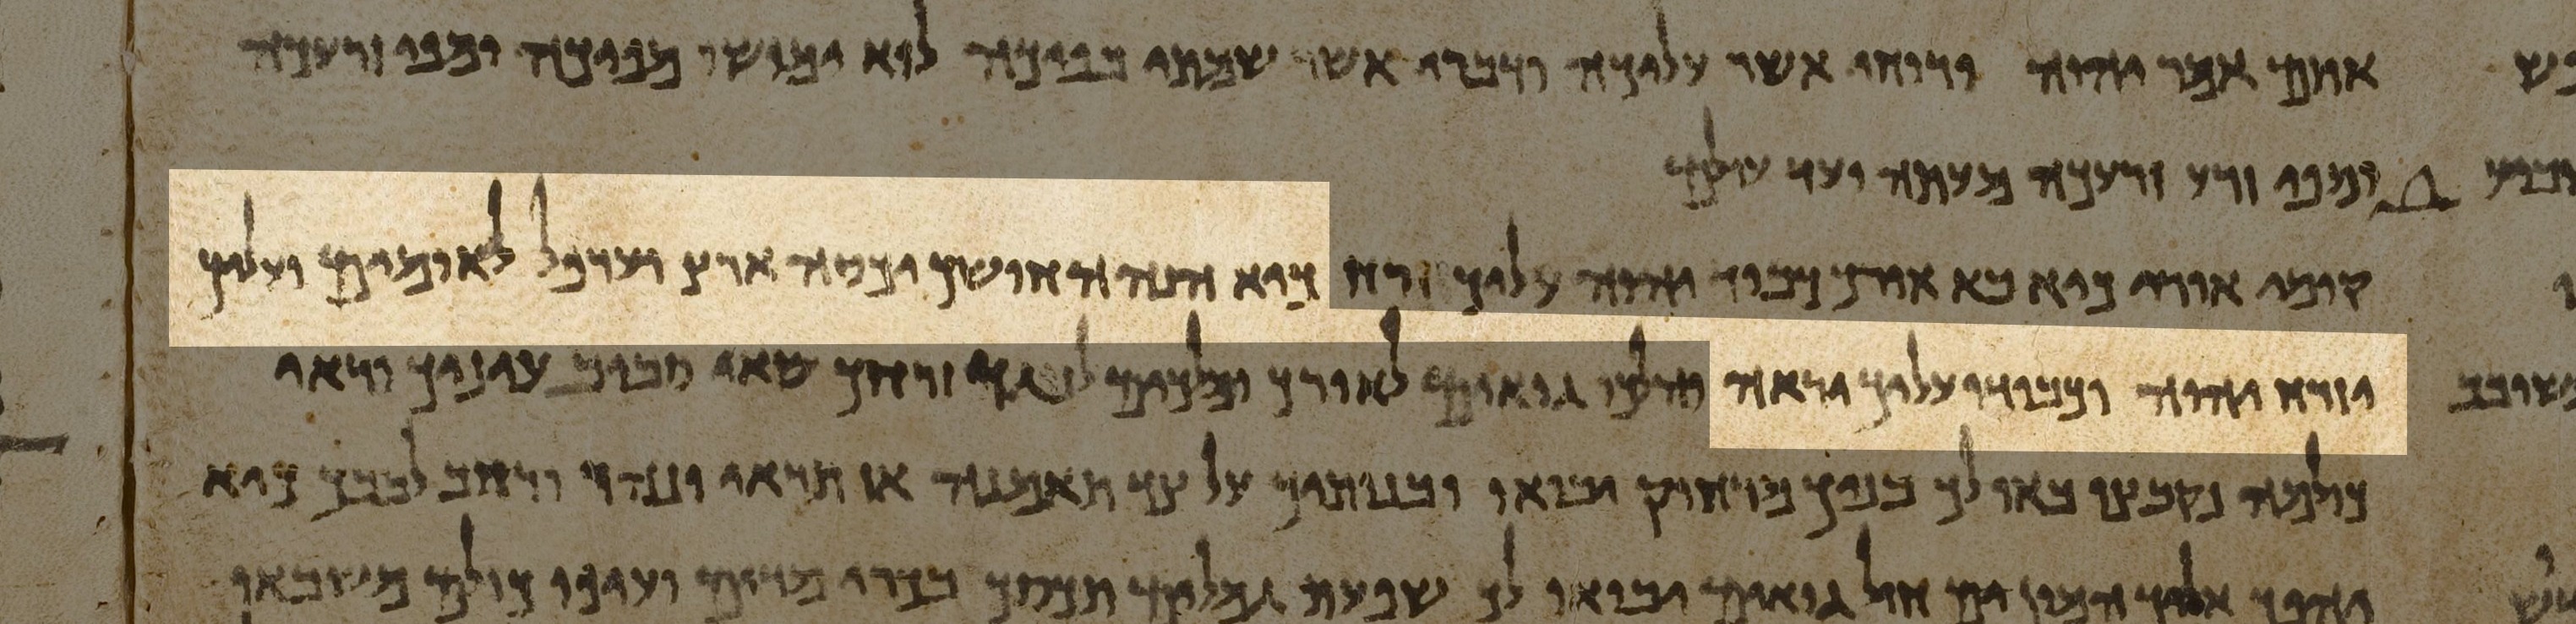 אותם אמר יהוה ורוחי אשר עליכה ודברי אשר שמתי בפיכה לוא ימושו מפיכה ומפי זרעכה
ומפי זרע זרעכה מעתה ועד עולם
קומי אורי כיא בא אורך וכבוד יהוה עליך זרח כיא הנה החושך יכסה ארץ וערפל לאומים ועליך
יזרח יהוה וכבודו עליך יראה והלכו גואים לאורך ומלכים לנגד זרחך שאי סביב עיניך וראי
כולמה נקבצו באו לך בניך מרחוק יבואו ובנותיך על צד תאמנה אז תראי ורחב לבבך כיא
יהפך אליך המון ים חיל גואים יבואו לך שפעת גמלים תכסך בכרי מדים ועיפו כולם משבאו